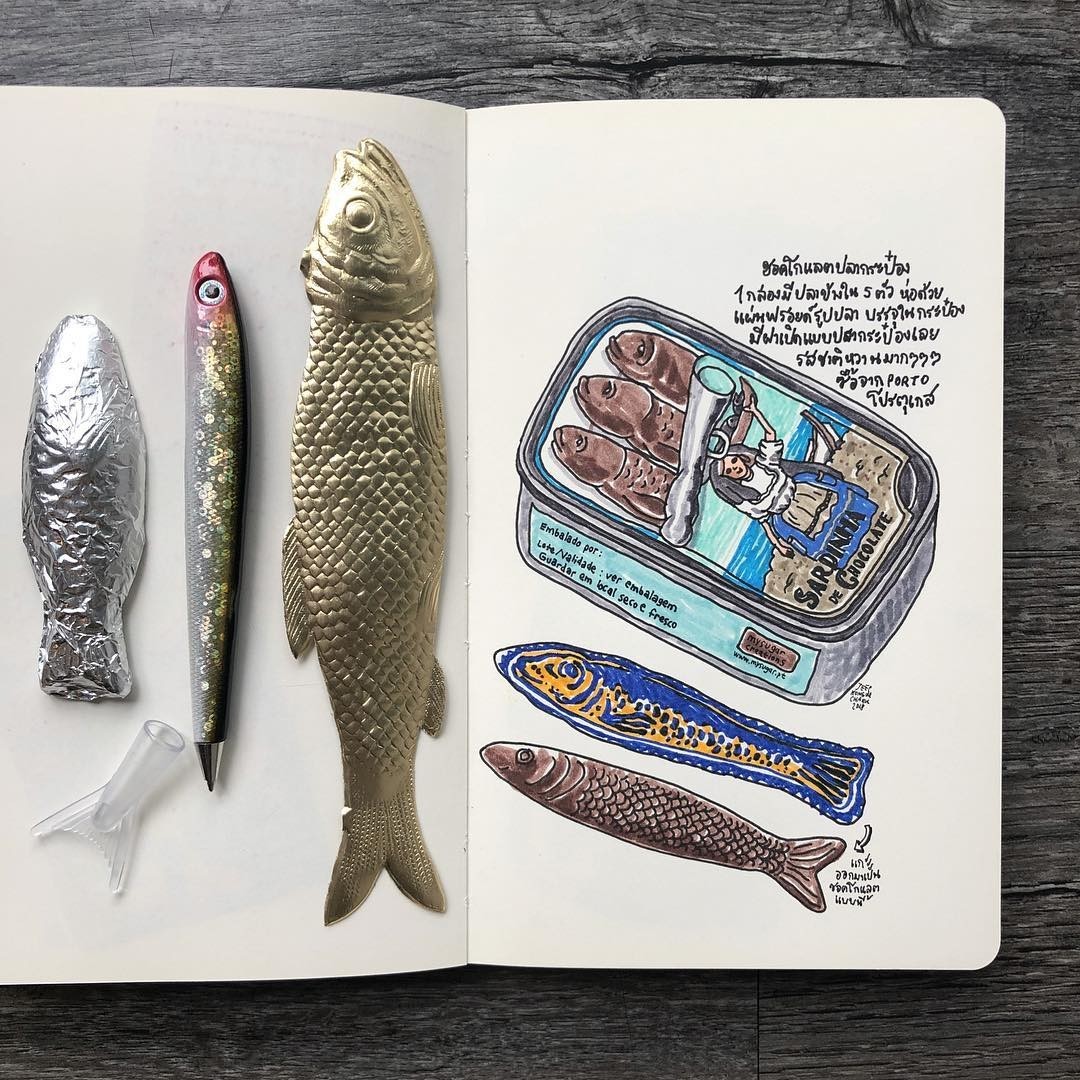 ชอคโกแลตปลากระป๋อง
1 กล่องมีปลาข้างใน 5 ตัว ห่อด้วย
แผ่นฟรอยด์รูปปลา บรรจุในกระป๋อง
มีฝาเปิดแบบปลากระป๋องเลย
รสชาติหวานมากๆๆๆ
ซื้อจาก PORTO
โปรตุเกส
SARDINHA
DE CHOCOLATE
Embalado por:
Lote/Validade: ver embalagem
Guardar em local seco e fresco
mysugar
creations
www.mysugar.pt
2018
แกะ
ออกมาเป็น
ชอคโกแลต
แบบนี้